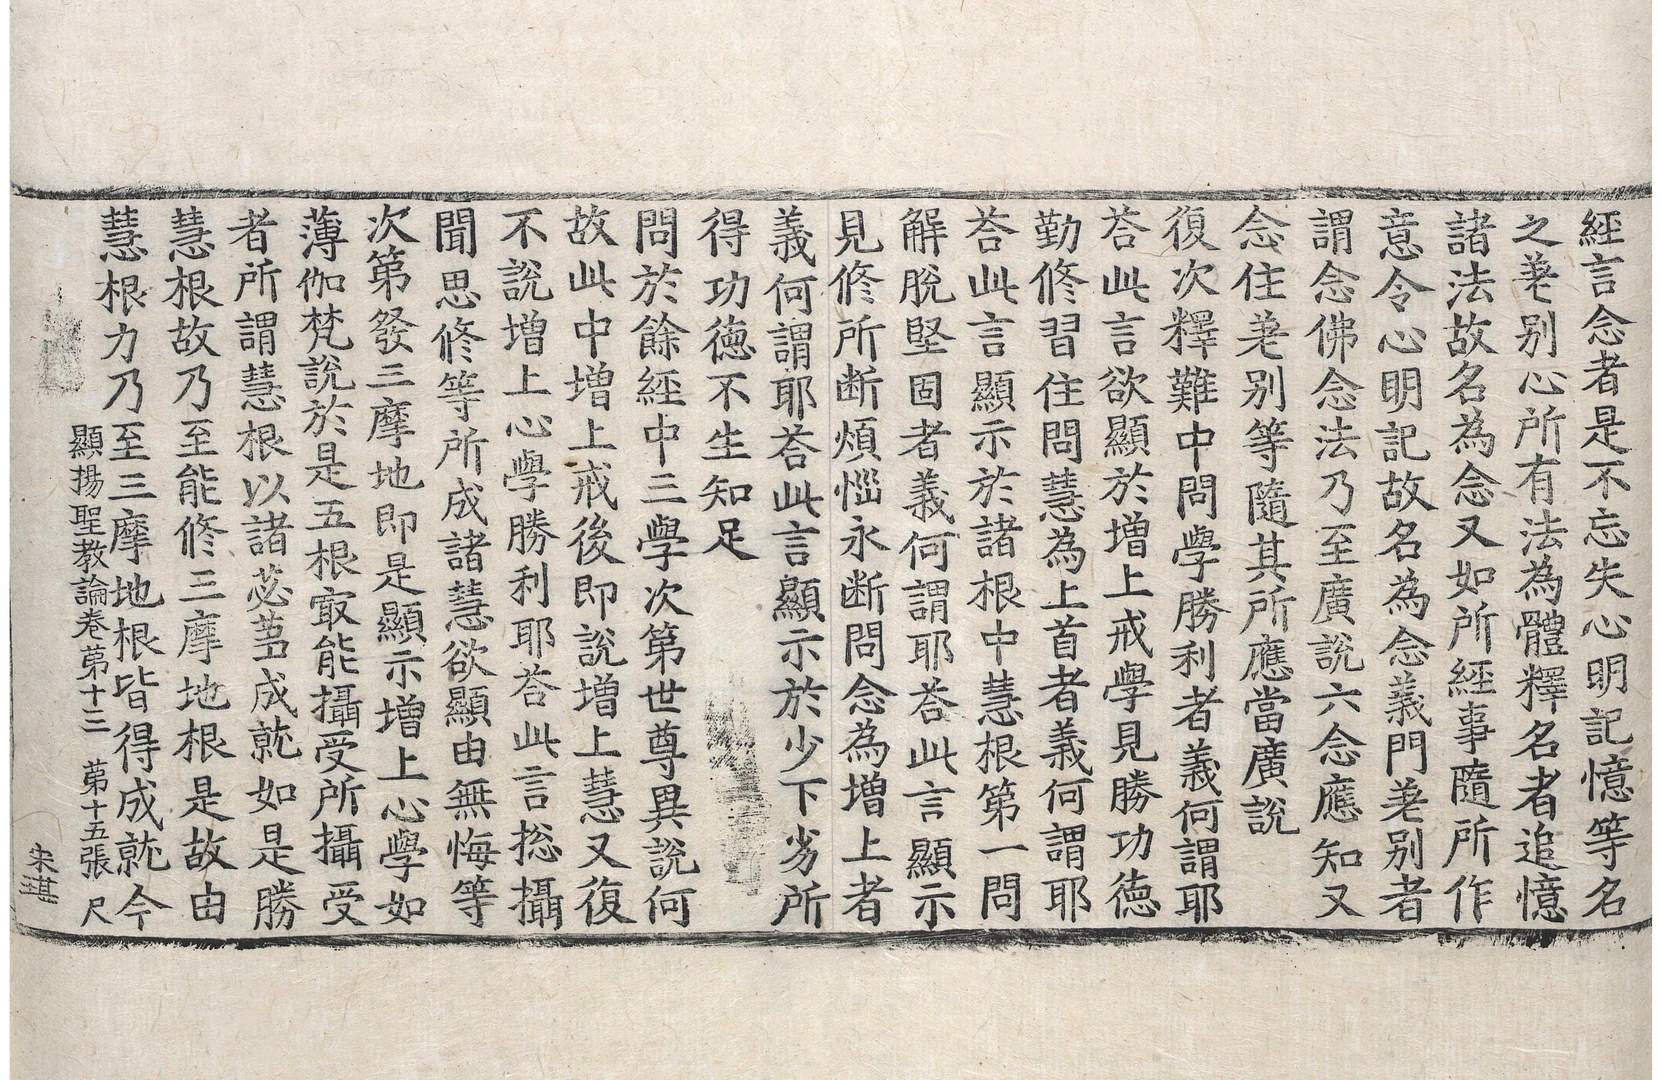 經言念者是不忘失心明記憶等名
之差别心所有法為體釋名者追憶
諸法故名為念又如所經事隨所作
意令心明記故名為念義門差别者
謂念佛念法乃至廣說六念應知又
念住差别等隨其所應當廣說
復次釋難中問學勝利者義何謂耶
荅此言欲顯於增上戒學見勝功德
勤修習住問慧為上首者義何謂耶
荅此言顯示於諸根中慧根第一問
解脫堅固者義何謂耶荅此言顯示
見修所断煩惱永断問念為增上者
義何謂耶荅此言顯示於少下劣所
得功德不生知足
問於餘經中三學次第世尊異說何
故此中增上戒後即說增上慧又復
不說增上心學勝利耶荅此言捴攝
聞思修等所成諸慧欲顯由無悔等
次第發三摩地即是顯示增上心學如
薄伽梵說於是五根㝡能攝受所攝受
者所謂慧根以諸苾蒭成就如是勝
慧根故乃至能修三摩地根是故由
慧根力乃至三摩地根皆得成就今
顯揚聖教論卷苐十三　苐十五張　尺
朱湛